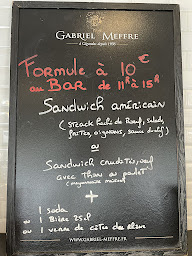 GABRIEL MEFFRE
à Gigondas depuis 1936
FORMULE à 10€
au BAR de 11h à 15h
Sandwich américain
( STEACK haché de Boeuf, salade,
frites, oignons, sauce
ou
Sandwich crudités, oeuf
avec Thon ou poulet
( mayonnaise maison
+
1 soda
ou 1 Bière 25cl
ou 1 verre de côtes du rhône
WWW.GABRIEL-MEFFRE.FR